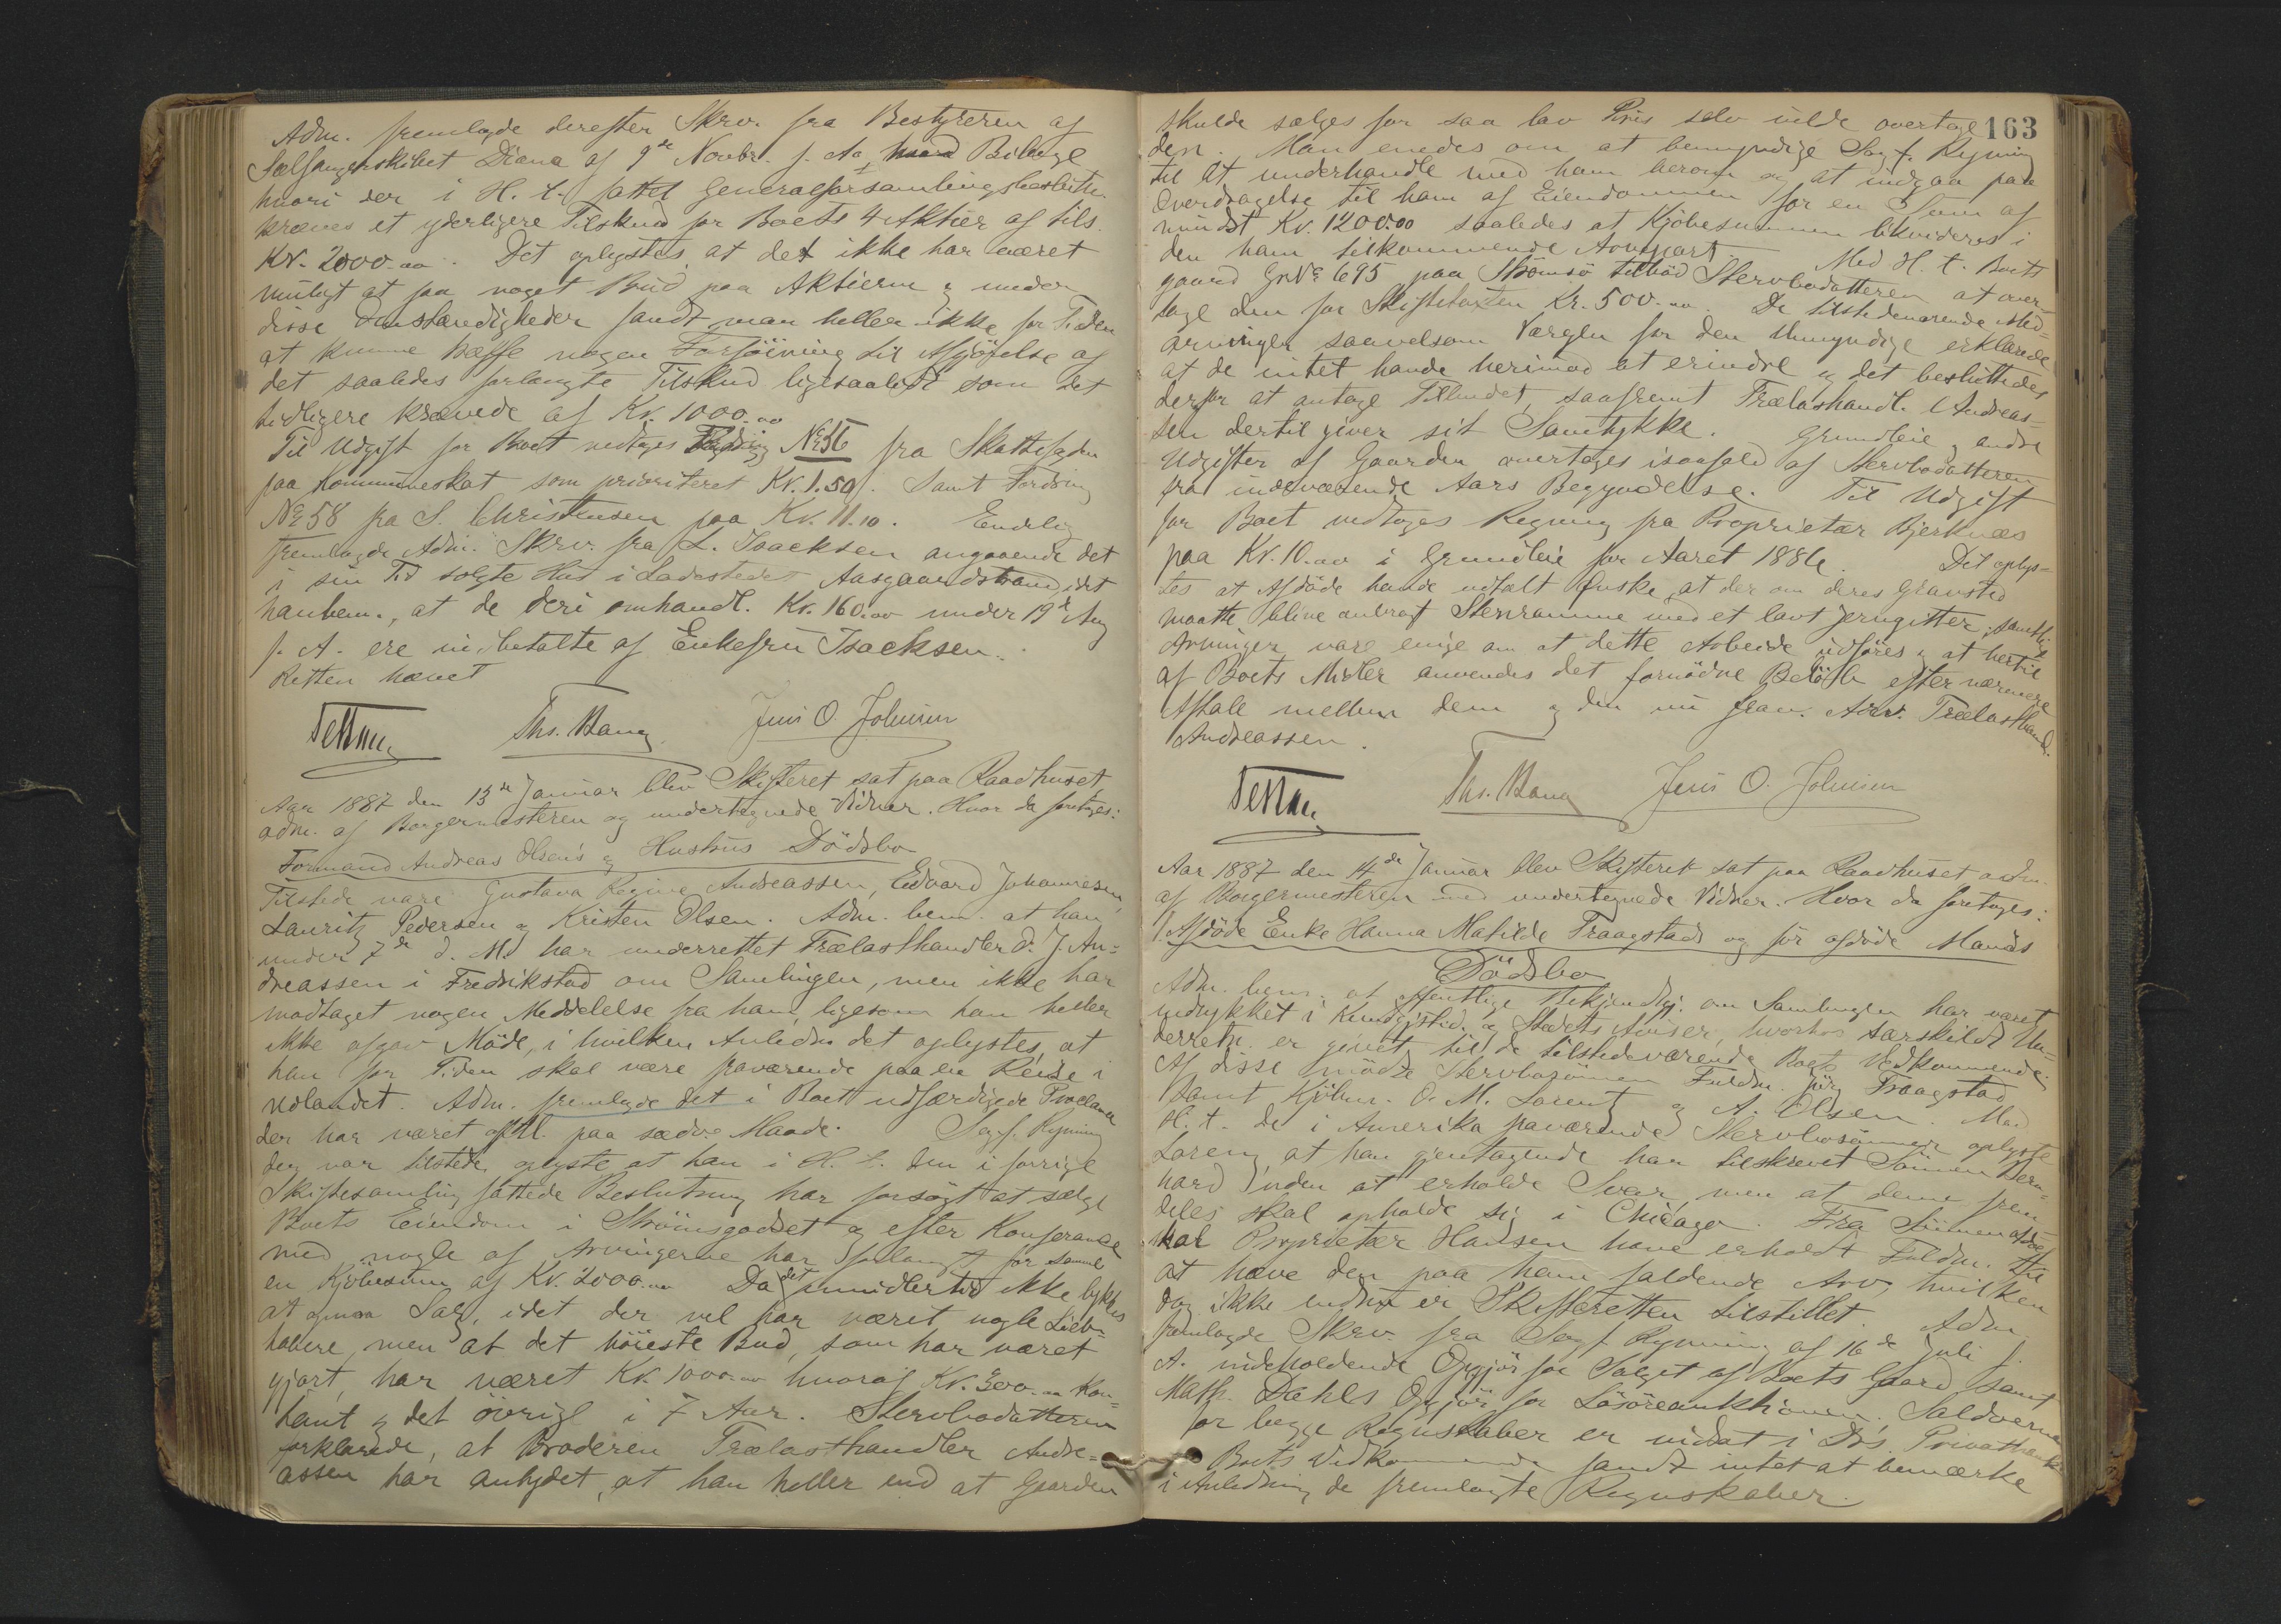 Adm. fremlagde derefter Skrv. fra Bestyreren af
Sælfangerskibet Diana af 9de Novbr. f. A. med Bilage
hvori der i H. t. fattet Generalforsamlingsbeslutn.
kræves et yderligere Tilskud for Boets 4 Aktier af tils.
Kr. 2000.00. Det oplystes, at det ikke har været
muligt at faa noget Bud paa Aktierne og under
disse Omstændigheder fandt man heller ikke for Tiden
at kunne træffe nogen Forföining til Afgjörelse af
det saaledes forlangte Tilskud ligesaalidt som det
tidligere krævede af Kr. 1000.00
Til Udgift for Boet vedtages Fordring No 56 fra Skattefogden
paa Kommuneskat som prioriteret Kr. 1.50. Samt Fordring
No 58 fra S. Christensen paa Kr. 11.10. Endelig
fremlagde Adm. Skrv. fra L. Isacksen angaaende det
i sin Tid solgte Hus i Ladestedet Aasgaardstrand, idet
han bem., at de deri omhandl. Kr. 160.00 under 19de Aug
f. A. ere indbetalte af Enkefru Isacksen.
Retten hævet
Ths. Bang Jens O. Johnsen
Aar 1887 den 13de Januar blev Skifteret sat paa Raadhuset,
adm. af Borgermesteren og undertegnede Vidner. Hvor da foretages:
Formand Andreas Olsen's og Hustrus Dödsbo
Tilstede vare Gustava Regine Andreassen, Edvard Johannesen,
Lauritz Pedersen og Kristen Olsen. Adm. bem. at han
under 7de d. M. har underrettet Trælasthandler O. J. An-
dreassen i Fredrikstad om Samlingen, men ikke har
modtaget nogen Meddelelse fra ham, ligesom han heller
ikke afgav Möde, i hvilken Anledn. det oplystes, at
han for Tiden skal være fraværende paa en Reise i
Udlandet. Adm. fremlagde det i Boet udfærdigede Proclama
der har været paa sædv. Maade. Sagf. Rynning
der var tilstede, oplyste at han i H. t. den i forrige
Skiftesamling fattede Beslutning har forsögt at sælge
Boets Eiendom i Strömsgodset og efter Konferance
med nogle af Arvingerne har forlangt for samme
en Kjöbesum af Kr. 2000.00 Da det imidlertid ikke lykkes
at opnaa Salg, idet der vel har været nogle Lieb-
habere, men at det höieste Bud, som har været
gjort, har været Kr. 1000.00 hvoraf Kr. 300.00 Kon-
tant og det övrige i 7 Aar. Stervbodatteren
forklarede, at Broderen Trælasthandler Andre-
assen har antydet, at han heller end at Gaarden
163
skulde sælges for saa lav Pris selv vilde overtage
den. Man enedes om at bemyndige Sagf. Rynning
til at underhandle med ham herom og at indgaa paa
Overdragelse til ham af Eiendommen for en Sum af
mindst Kr. 1200.00 saaledes at Kjöbesummen likvideres i
den ham tilkommende Arvepart. Med H. t. Boets
gaard Gr No 695 paa Strömsö tilböd Stervbodatteren at over-
tage den for Skiftetaxten Kr. 500.00. De tilstedeværende Med-
arvinger saavelsom Værgen for den Umyndige erklærede
at de intet havde herimod at erindre og det besluttedes
derfor at antage Tilbudet, saafremt Trælasthandl. Andreas-
sen dertil giver sit Samtykke. Grundleie og andre
Udgifter af Gaarden overtages isaafald af Stervbodatteren
fra indeværende Aars Begyndelse. Til Udgift
for Boet vedtoges Regning fra Proprietær Bjerknæs
paa Kr. 10.00 i Grundleie for Aaret 1886. Det oplys-
tes at Afdöde havde udtalt Önske, at der om deres Gravsted
maatte blive anbragt Stenramme med et lavt Jerngitter; samtlige
Arvinger vare enige om at dette Arbeide udföres og at hertil
af Boets Midler anvendes det fornödne Belöb efter nærmere
Aftale mellem dem og den nu frav. Arv. Trælasthandl.
Andreassen.
Ths. Bang Jens O. Johnsen
Aar 1887 den 14de Januar blev Skifteret sat paa Raadhuset adm.
af Borgermesteren med undertegnede Vidner. Hvor da foretages:
1. Afdöde Enke Hanna Matilde Fraagstads og för afdöde Mands
Dödsbo
Adm. bem. at offentlige Bekjendtgj. om Samlingen har været
indrykket i Kundgj.tid. og Stedets Aviser, hvorhos særskildt Un-
derretn. er givet til de tilstedeværende Boets Vedkommende.
Af disse mödte Stervbosönnen Fuldm. Jörg Fraagstad
samt Kjöbm. O. M. Lorentz og A. Olsen. Med
H. t. de i Amerika fraværende Stervbosönner oplyste
Lorentz at han gjentagende har tilskrevet Sönnen Bern-
hard uden at erholde Svar, men at denne frem-
deles skal opholde sig i Chicago. Fra Sönnen
skal Proprietær Hansen have erholdt Fuldm. til
at hæve den paa ham faldende Arv, hvilken
dog ikke endnu er Skifteretten tilstillet. Adm.
fremlagde Skrv. fra Sagf. Rynning af 16de Juli f.
A. indeholdende Opgjör for Salget af Boets Gaard samt
Math. Dahls Opgjör for Lösöreauktionen. Saldoerne
for begge Regnskaber er indsat i Drs. Privatbank
Boets Vedkommende fandt intet at bemærke
i Anledning de fremlagte Regnskaber.